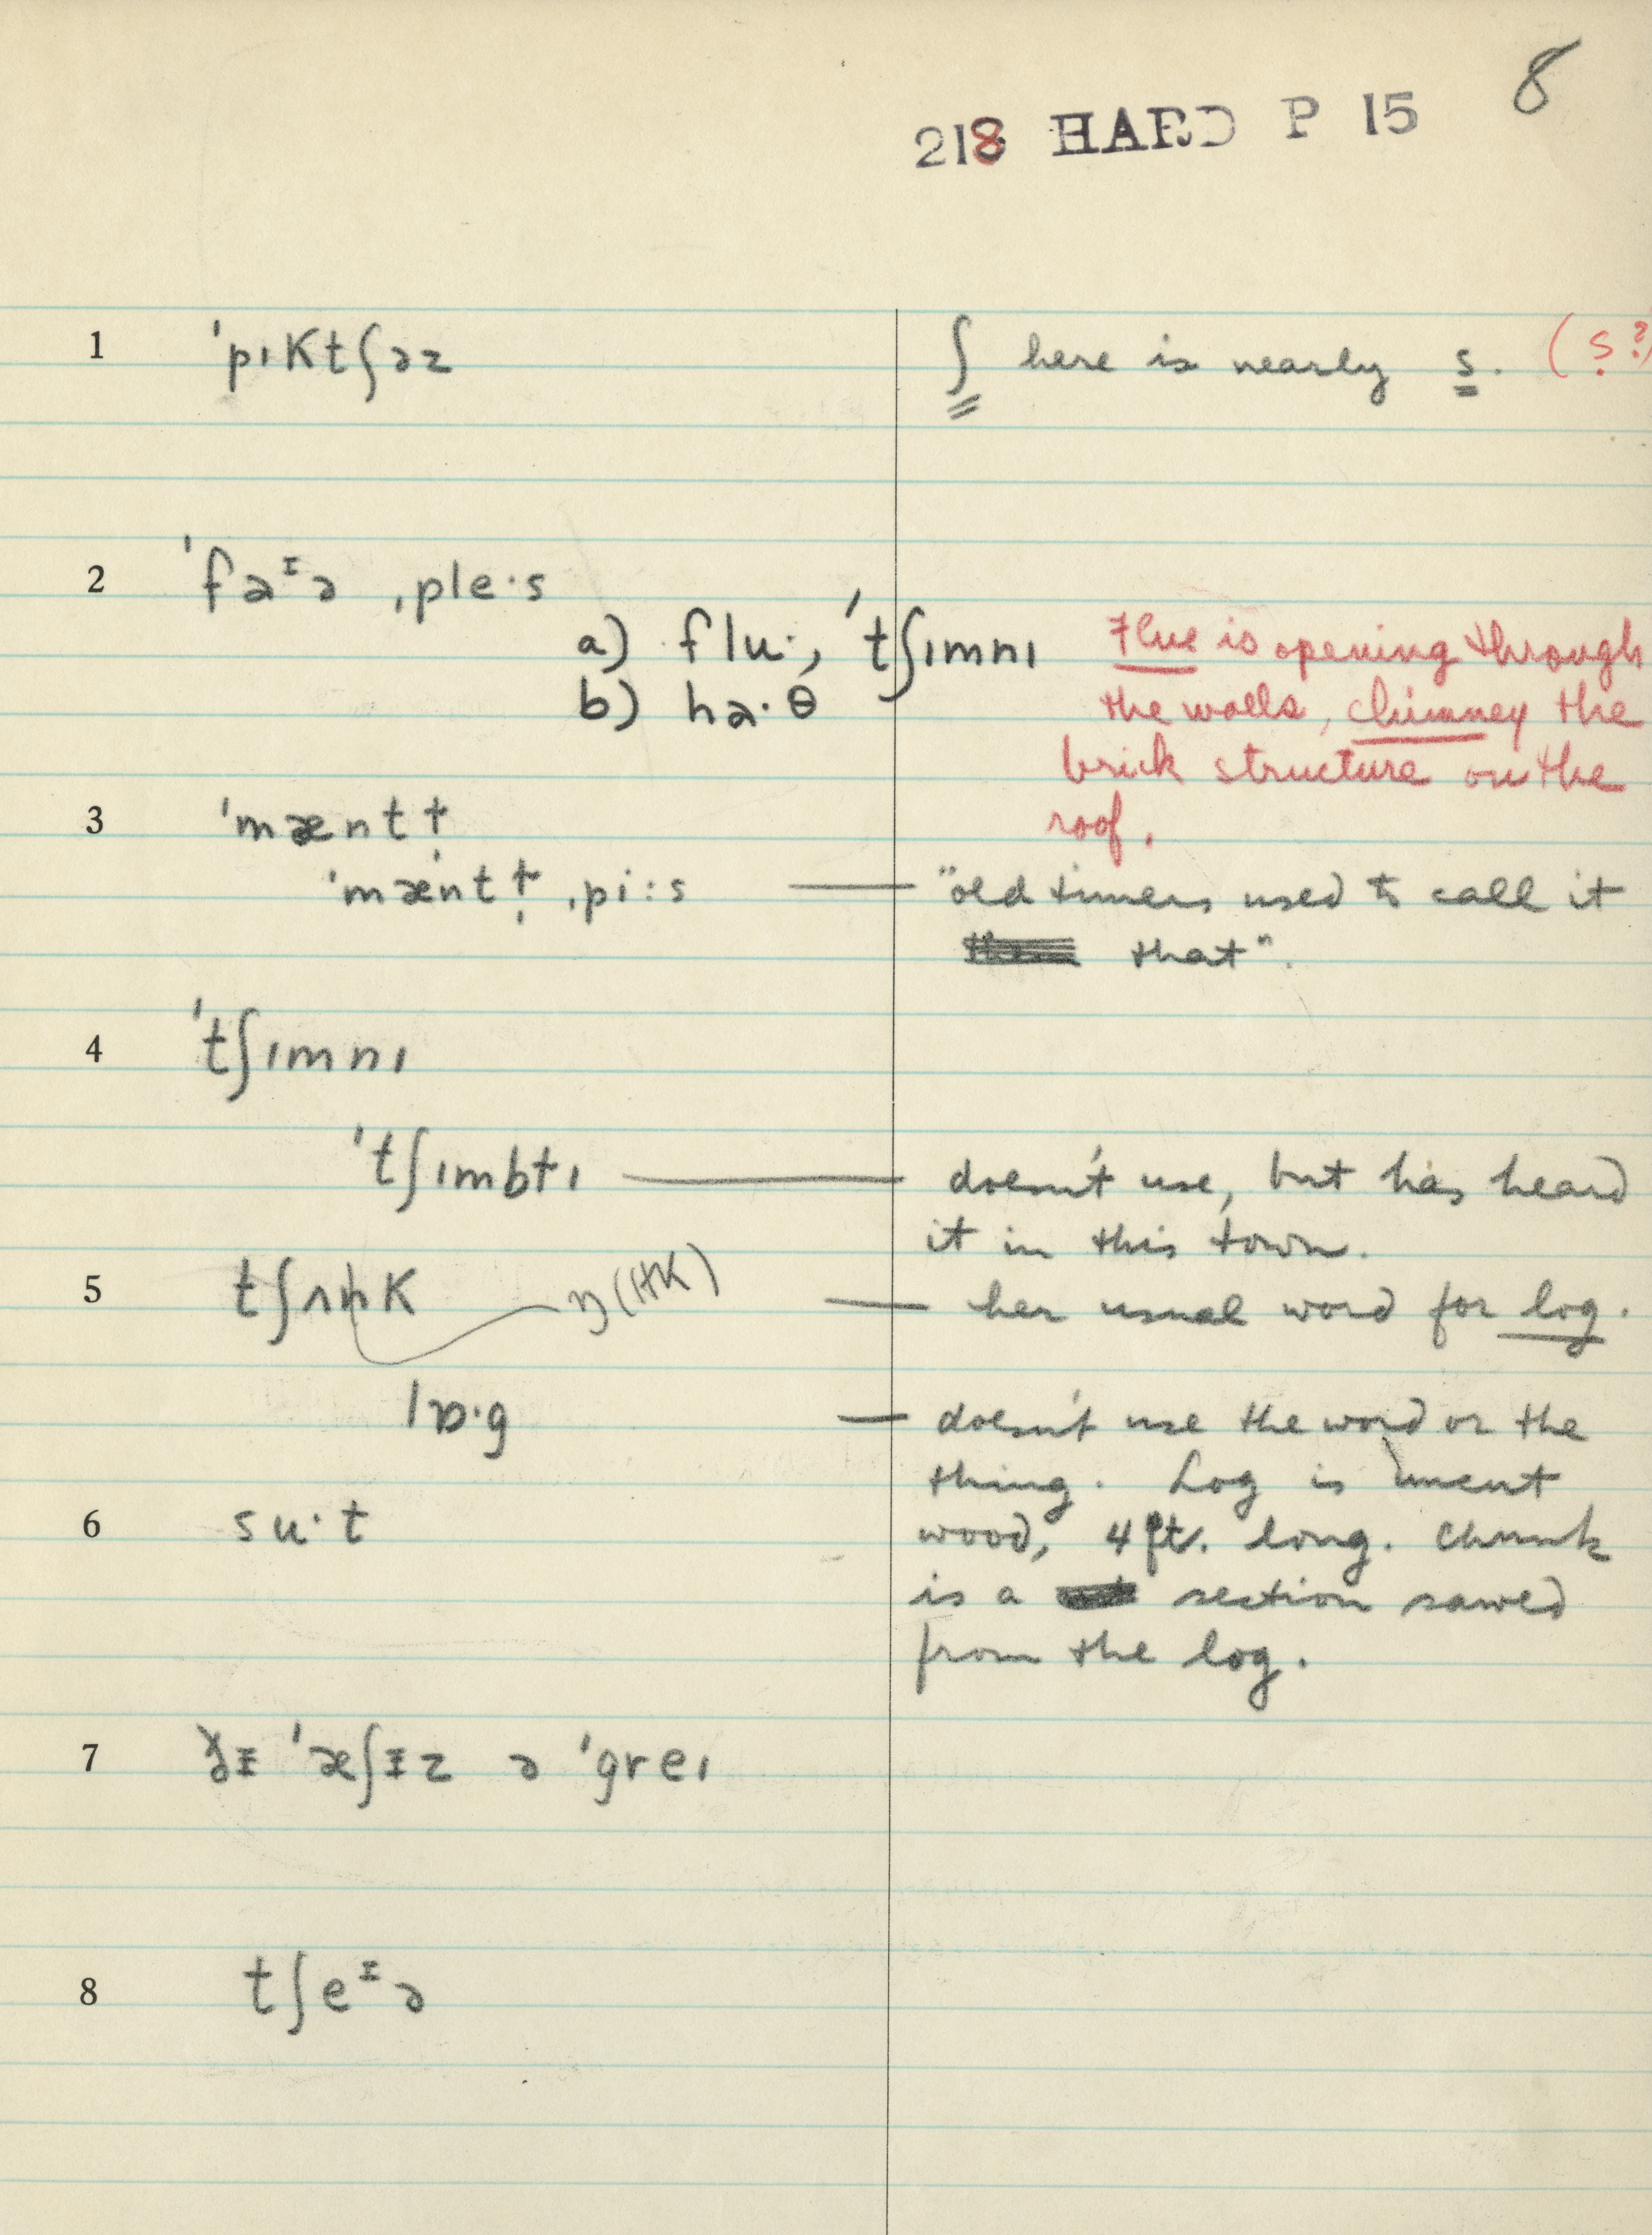 8
218 HARD P 15
1 ˈpıKtʃəz ʃ here is nearly s. (ṣ?)
2 ˈfaᵻə ˌple·s
a) flu·, ˈtʃımnı Flue is opening through
b) ha·θ the walls, chimney the
brick structure on the
3 ˈmæntɫ̩ roof.
ˈmæntɫ̩ ˌpi:s — "old timers used to call it
that".
4 ˈtʃımnı
ˈtʃımbɫı — doesn't use, but has heard
it in this town.
5 tʃʌnK ŋ(HK) — her usual word for log.
lɒ·g — doesn't use the word or the
thing. Log is uncut
6 su·t wood, 4 ft. long. Chunk
is a section sawed
from the log.
7 ðᵻ ˈæʃᵻz ə ˈgreı
8 tʃeᵻə